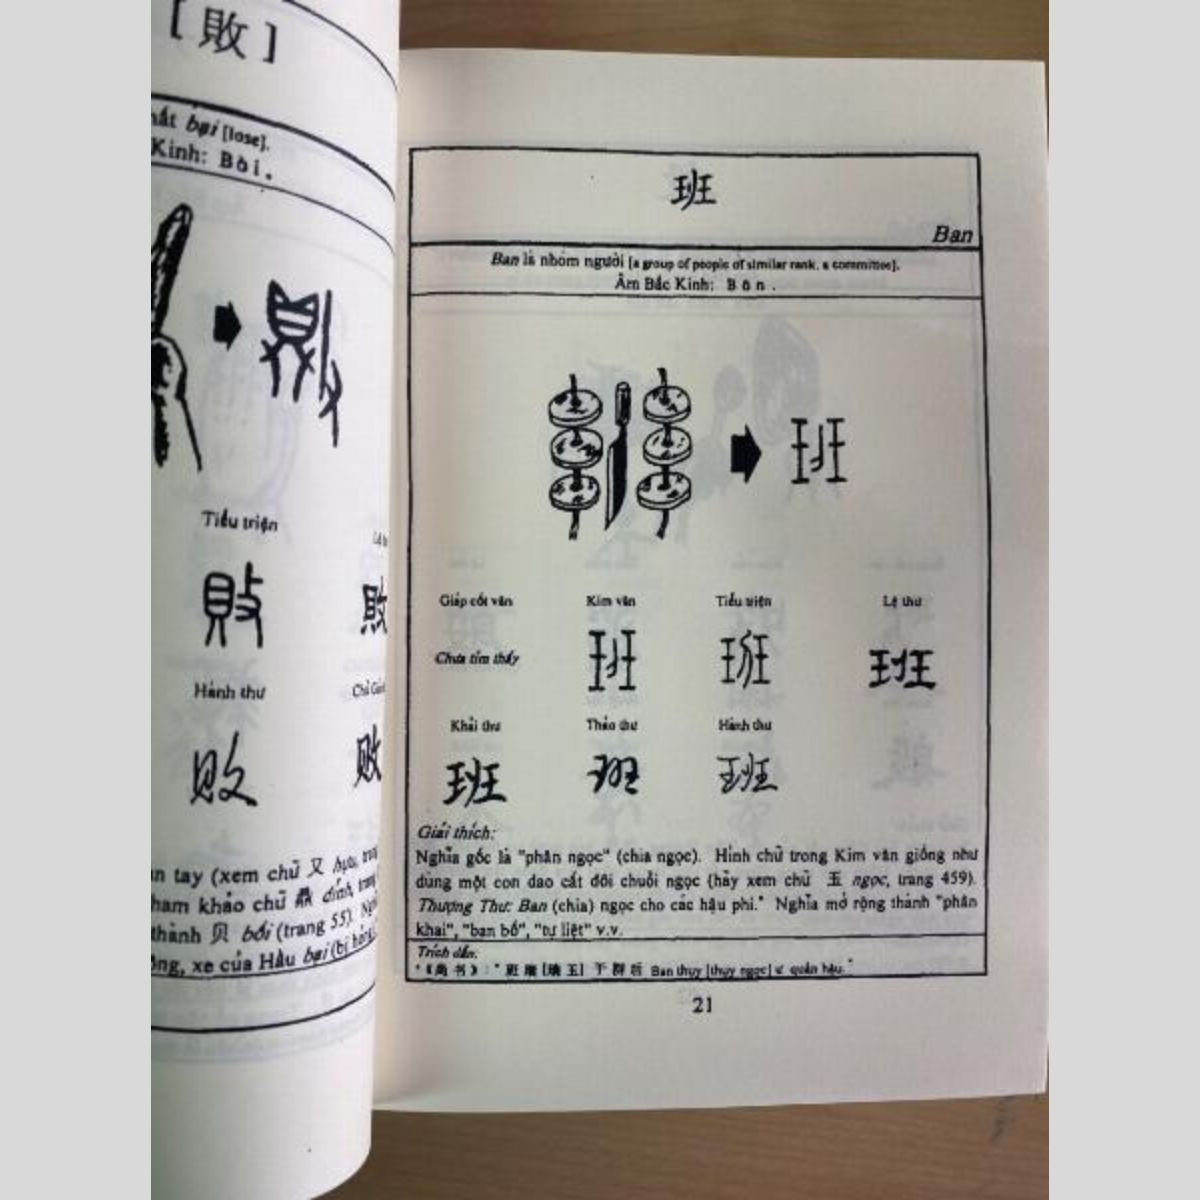 [ 敗 ]
bại [lose].
Kinh: Bòi.
Tiểu triện
敗
敗
Hành thư
败
败
tay (xem chữ 又 hựu, trang
khảo chữ 鼎 đỉnh, trang
thành 贝 bối (trang 55).
xe của Hầu bại (bị hỏng
班
Ban
Ban là nhóm người [a group of people of similar rank, a committee].
Âm Bắc Kinh: Ban.
班
Giáp cốt văn Kim văn Tiểu triện Lệ thư
Chưa tìm thấy 班 班 班
Khải thư Thảo thư Hành thư
班 班 班
Giải thích:
Nghĩa gốc là "phân ngọc" (chia ngọc). Hình chữ trong Kim văn giống như
dùng một con dao cắt đôi chuỗi ngọc (hãy xem chữ 玉 ngọc, trang 459).
Thượng Thư: Ban (chia) ngọc cho các hậu phi." Nghĩa mở rộng thành "phân
khai", "ban bố", "tự liệt" v.v.
Trích dẫn.
"《尚书》: " 班瑞 [瑞玉] 于群后 Ban thụy [thụy ngọc] vu quần hậu."
21